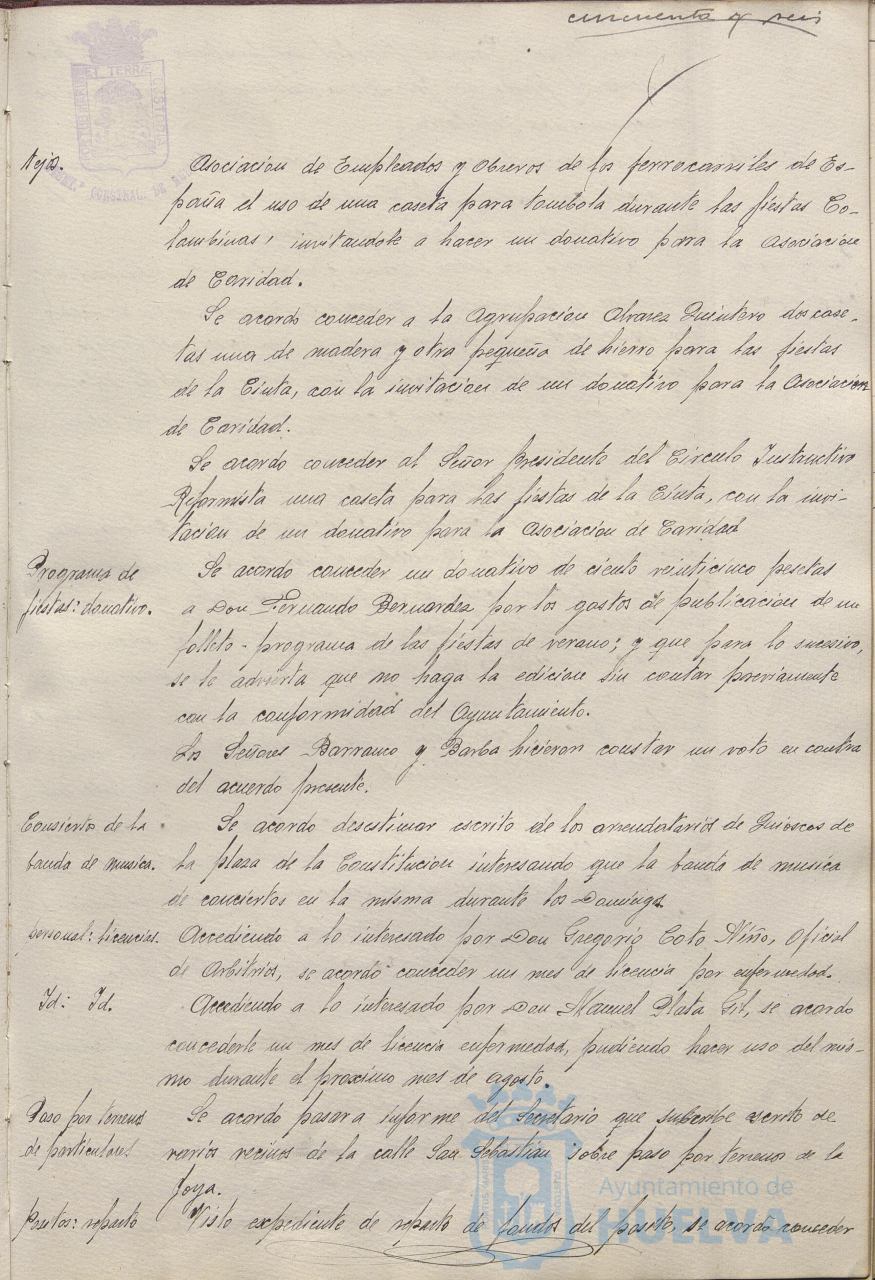 cincuenta y seis
tejos.
Asociacion de Empleados y Obreros de los ferrocarriles de Es-
paña el uso de una caseta para tombola durante las fiestas Co-
lombinas, invitandole a hacer un donativo para la Asociacion
de Caridad.
Se acordo conceder a la Agrupacion Alvarez Quintero dos case-
tas una de madera y otra pequeña de hierro para las fiestas
de la Cinta, con la invitacion de un donativo para la Asociacion
de Caridad.
Se acordo conceder al Señor Presidente del Circulo Instructivo
Reformista una caseta para las fiestas de la Cinta, con la invi-
tacion de un donativo para la Asociacion de Caridad
Programa de
fiestas: donativo.
Se acordo conceder un donativo de ciento veinticinco pesetas
a Don Fernando Bernardez por los gastos de publicacion de un
folleto-programa de las fiestas de verano; y que para lo sucesivo,
se le advierta que no haga la edicion sin contar previamente
con la conformidad del Ayuntamiento.
Los Señores Barranco y Barba hicieron constar un voto en contra
del acuerdo presente.
Consierto de la
banda de musica.
Se acordo desestimar escrito de los arrendatarios de Quioscos de
la plaza de la Constitucion interesando que la banda de musica
de conciertos en la misma durante los Domingos.
personal: licencias.
Accediendo a lo interesado por Don Gregorio Coto Niño, Oficial
de Arbitrios, se acordó conceder un mes de licencia por enfermedad.
Id: Id.
Accediendo a lo interesado por Don Manuel Plata Gil, se acordo
concederle un mes de licencia enfermedad, pudiendo hacer uso del mis-
mo durante el proximo mes de agosto.
Paso por terrenos
de particulares
Se acordo pasar a informe del Secretario que suscribe escrito de
varios vecinos de la calle San Sebastian sobre paso por terrenos de la
Joya.
reparto
Visto expediente de reparto de fondos del posito, se acordó conceder
Ayuntamiento de
HUELVA